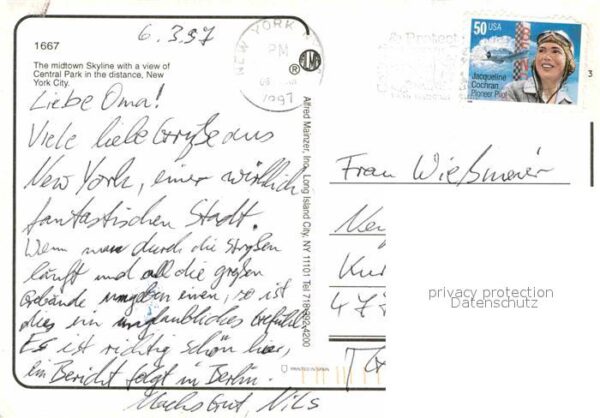 6.3.97
1667
The midtown Skyline with a view of
Central Park in the distance, New
York City.
Liebe Oma!
Viele liebe Grüße aus
New York, einer wirklich
fantastischen Stadt.
Wenn man durch die Straßen
läuft und all die großen
Gebäude umgeben einen, so ist
dies ein unglaubliches Gefühl.
Es ist richtig schön hier,
ein Bericht folgt in Berlin.
Nils
NEW YORK
PM
1997
®
Alfred Mainzer, Inc. Long Island City, NY 11101 Tel 718-392-4200
PRINTED IN SPAIN
50 USA
Jacqueline
Cochran
Pioneer Pilot
3
Frau Wießmeier
privacy protection
Datenschutz